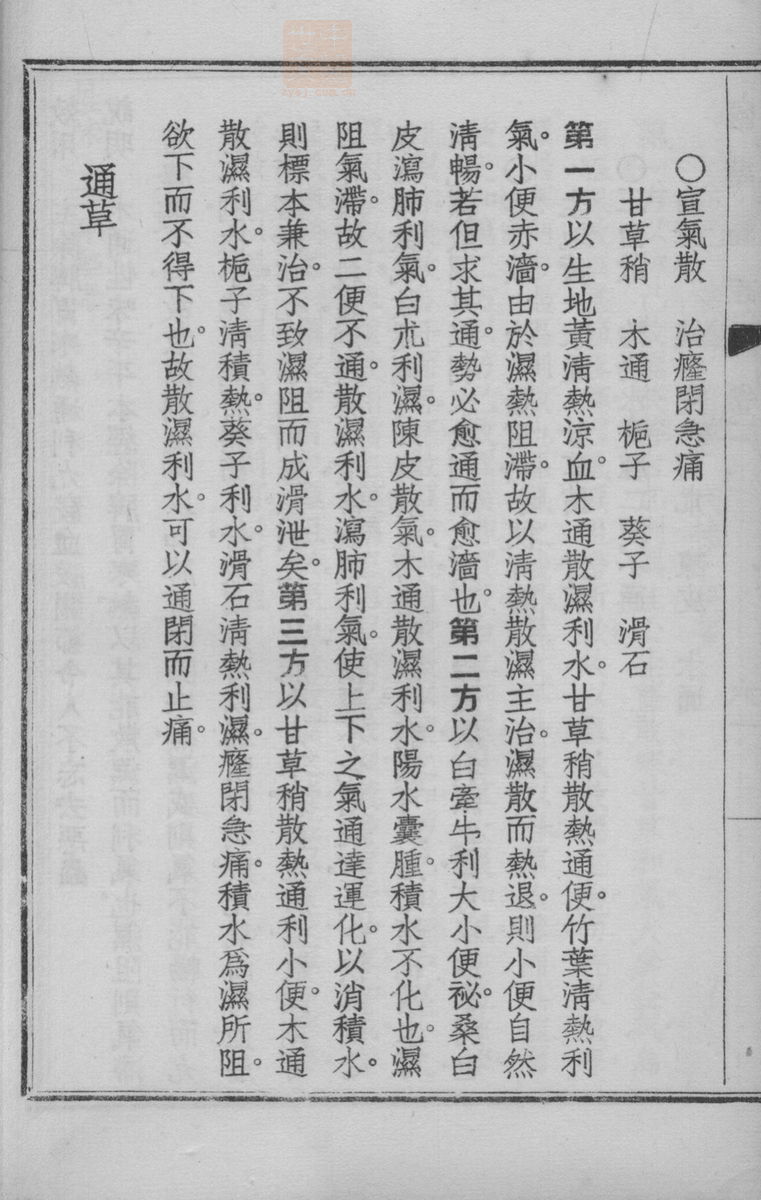 ○宣氣散　治癃閉急痛
甘草稍　木通　梔子　葵子　滑石
第一方以生地黃清熱涼血。木通散濕利水。甘草稍散熱通便。竹葉清熱利
氣。小便赤濇。由於濕熱阻滯。故以清熱散濕主治。濕散而熱退。則小便自然
清暢。若但求其通。勢必愈通而愈濇也。第二方以白牽牛利大小便祕。桑白
皮瀉肺利氣。白朮利濕。陳皮散氣。木通散濕利水。陽水囊腫。積水不化也。濕
阻氣滯。故二便不通。散濕利水。瀉肺利氣。使上下之氣通達運化。以消積水。
則標本兼治。不致濕阻而成滑泄矣。第三方以甘草稍散熱通利小便。木通
散濕利水。梔子清積熱。葵子利水。滑石清熱利濕。癃閉急痛。積水爲濕所阻。
欲下而不得下也。故散濕利水。可以通閉而止痛。
通草